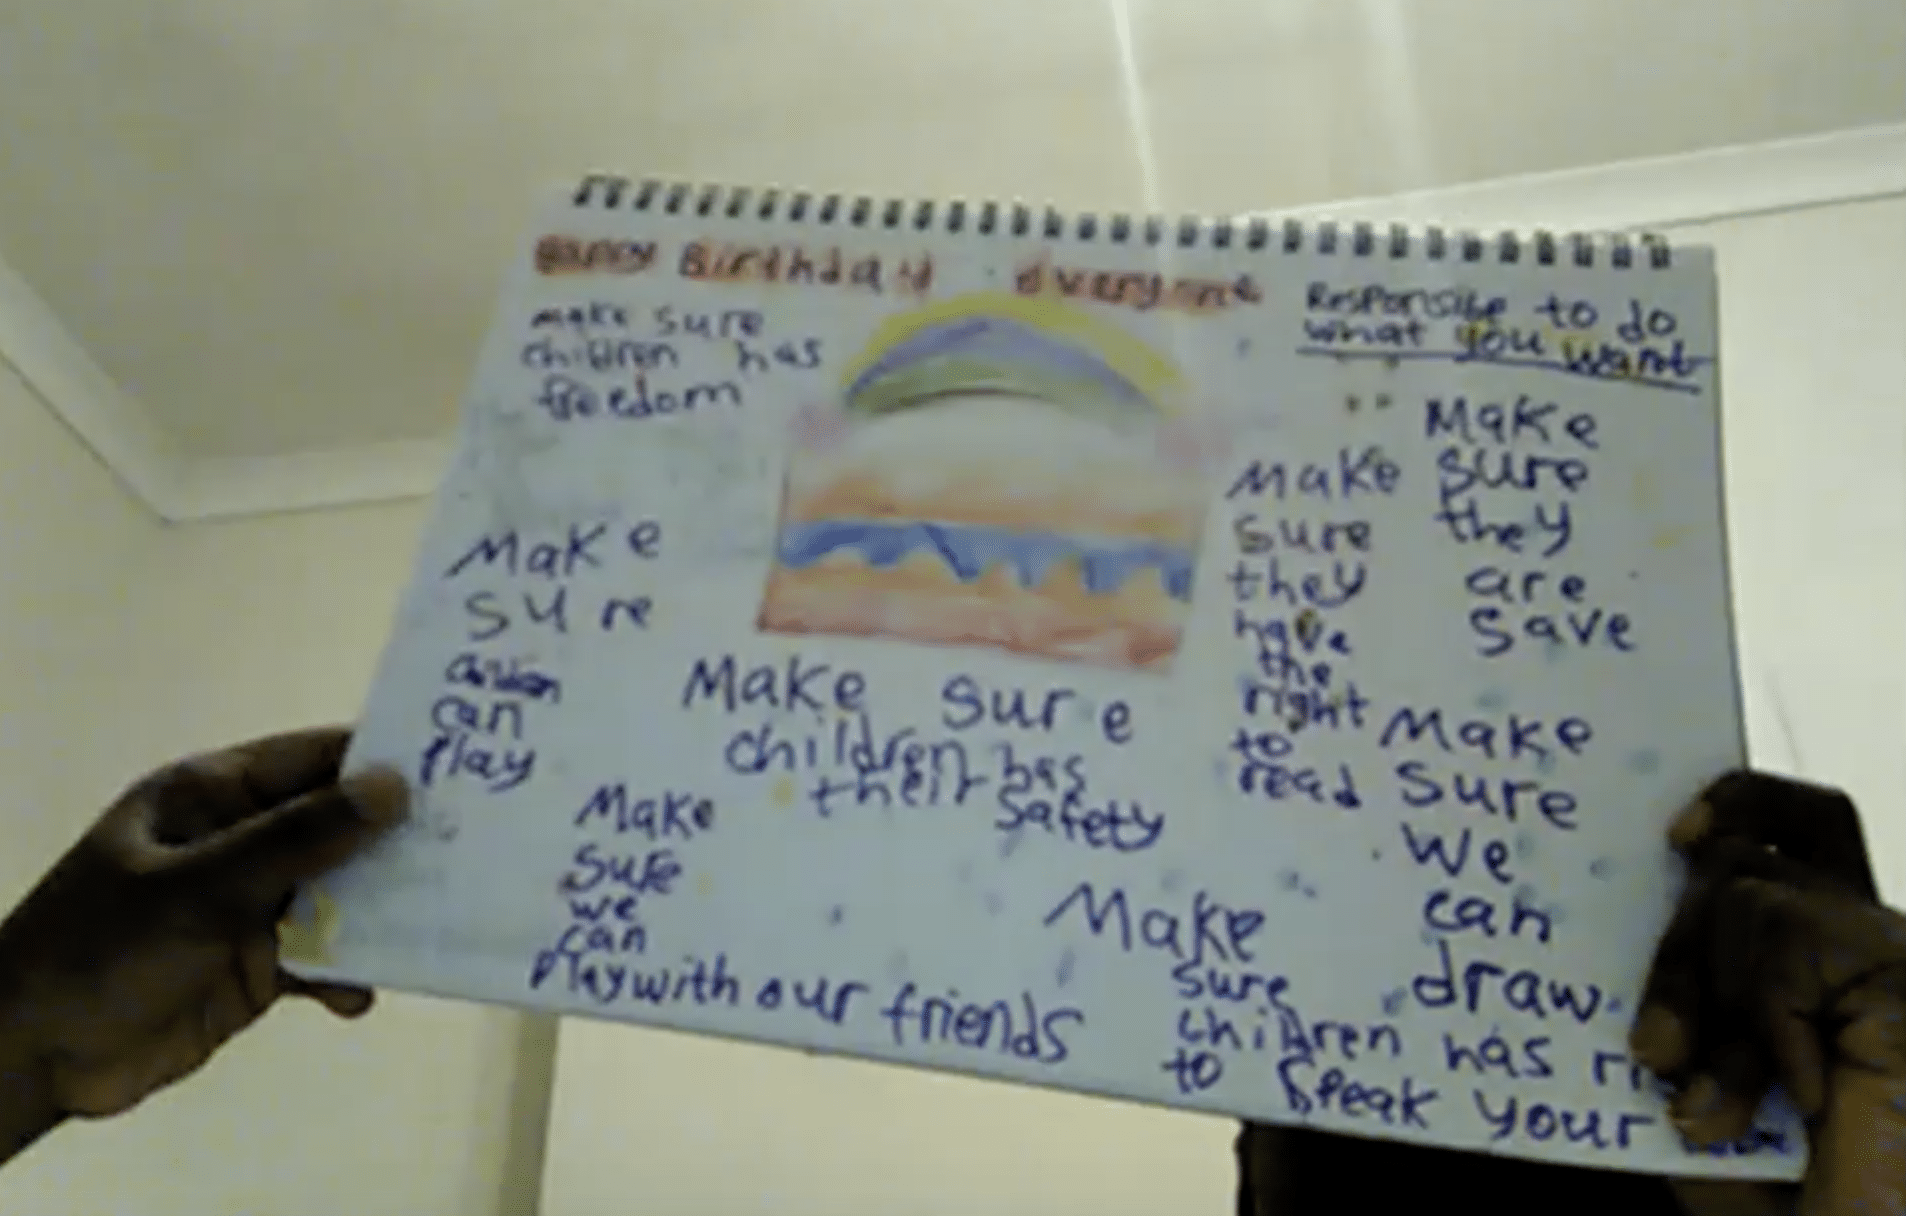 Happy Birthday everyone
make sure
children has
freedom
Responsibe to do
what you want
Make
sure
children
can
Play
Make sure
children has
their
Safety
Make
sure
they
have
the
right
to
read
Make
sure
they
are
save
Make
sure
we
can
Play with our friends
Make
sure
we
can
draw
Make
sure
children has
to speak your